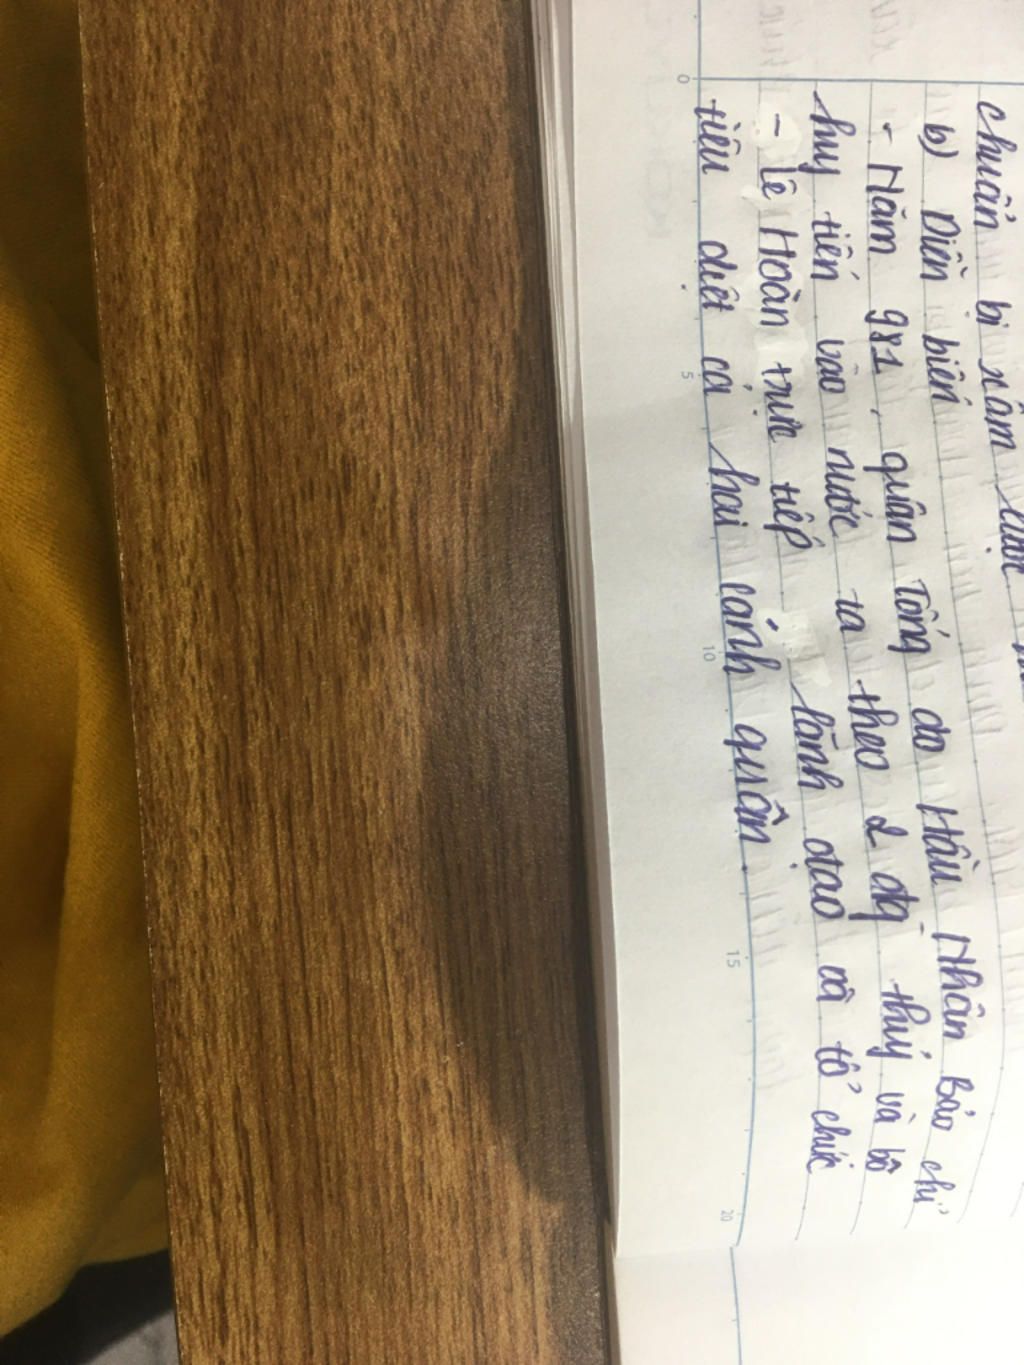 chuẩn bị xâm lược
b) Diễn biến
- Năm 981, quân Tống do Hầu Nhân Bảo chỉ
huy tiến vào nước ta theo 2 đg thuỷ và bộ
- Lê Hoàn trực tiếp lãnh đạo và tổ chức
tiêu diệt cả hai cánh quân.
0
5
10
15
20